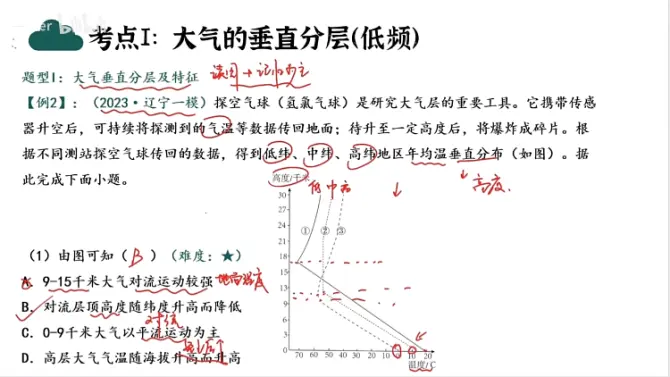 考点I: 大气的垂直分层(低频)
题型I: 大气垂直分层及特征 读图+识记为主
【例2】:（2023·辽宁一模）探空气球（氢氦气球）是研究大气层的重要工具。它携带传感
器升空后，可持续将探测到的气温等数据传回地面；待升至一定高度后，将爆炸成碎片。根
据不同测站探空气球传回的数据，得到低纬、中纬、高纬地区年均温垂直分布（如图）。据
此完成下面小题。
高度
高度/千米
低 中 高
30
27
24
21
18
15
12
9
6
3
0
① ② ③
70 60 50 40 30 20 10 0 10 20
温度/℃
（1）由图可知（ B ）（难度：★）
A. 9-15千米大气对流运动较强
B. 对流层顶高度随纬度升高而降低
对流
C. 0-9千米大气以平流运动为主
D. 高层大气气温随海拔升高而升高